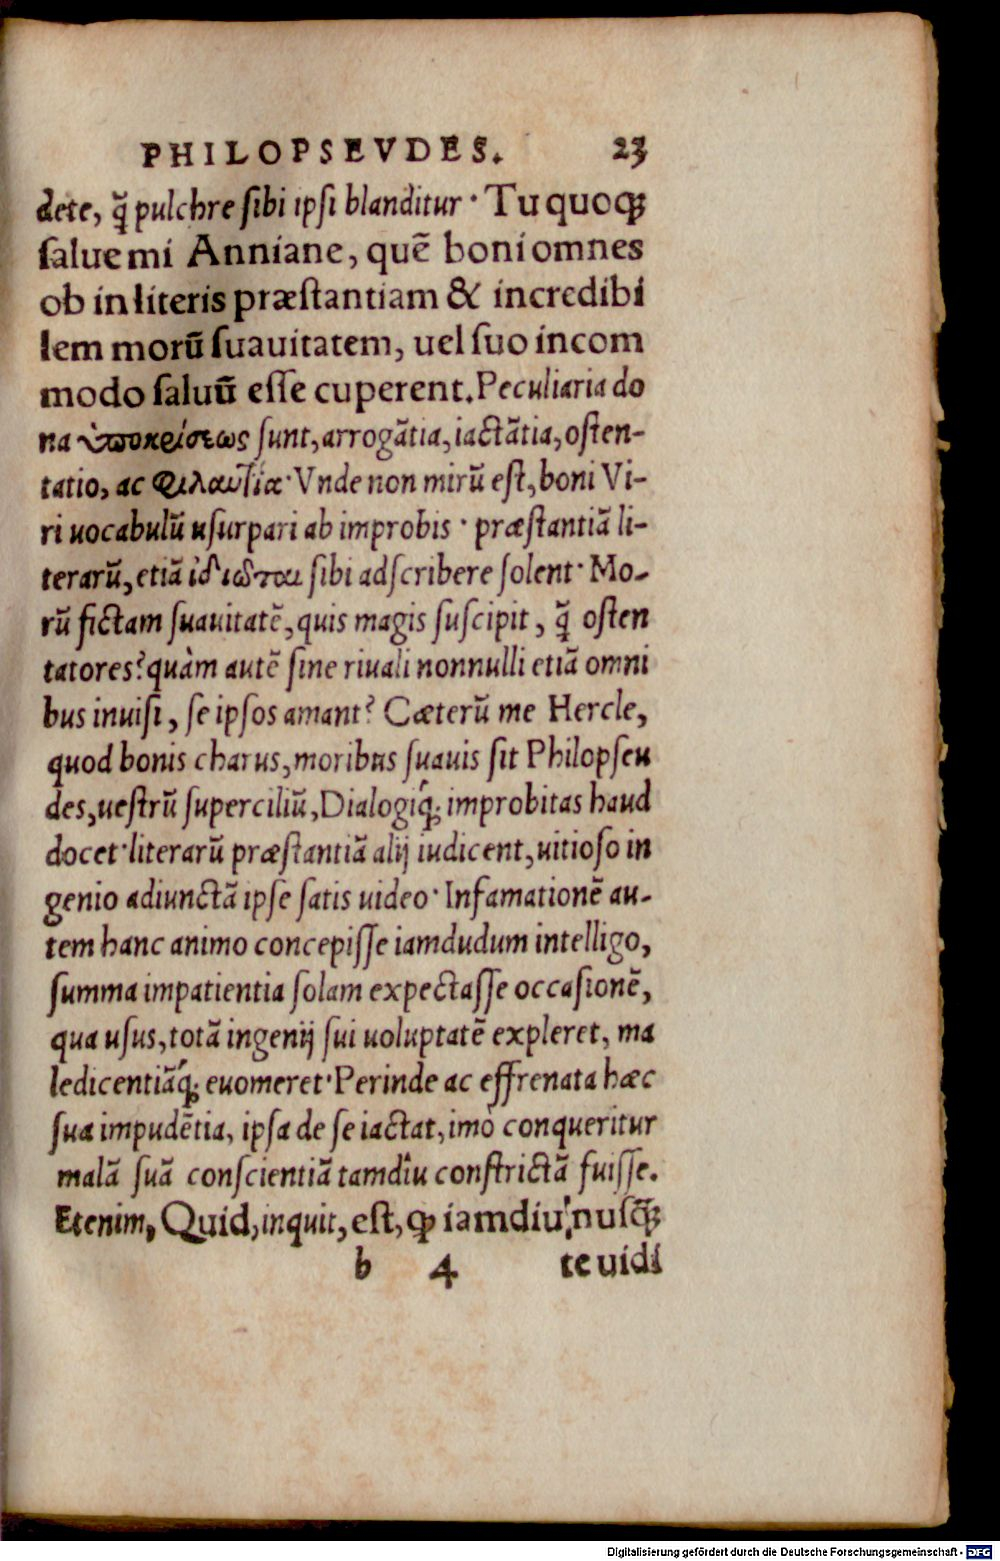 PHILOPSEVDES. 23
dete, q̃ pulchre sibi ipsi blanditur · Tu quoq;
salue mi Anniane, quē boni omnes
ob in literis præstantiam & incredibi
lem morū suauitatem, uel suo incom
modo saluū esse cuperent. Peculiaria do
na ὑποκρίσεως sunt, arrogātia, iactātia, osten-
tatio, ac Φιλαυτία · Vnde non mirū est, boni Vi-
ri uocabulū usurpari ab improbis · præstantiā li-
terarū, etiā ἰδιῶται sibi adscribere solent · Mo-
rū fictam suauitatē, quis magis suscipit, q̃ osten
tatores? quàm autē sine riuali nonnulli etiā omni
bus inuisi, se ipsos amant? Cæterū me Hercle,
quod bonis charus, moribus suauis sit Philopseu
des, uestrū superciliū, Dialogiq́; improbitas haud
docet · literarū præstantiā alij iudicent, uitioso in
genio adiunctā ipse satis uideo · Infamationē au-
tem hanc animo concepisse iamdudum intelligo,
summa impatientia solam expectasse occasionē,
qua usus, totā ingenij sui uoluptatē expleret, ma
ledicentiāq́; euomeret · Perinde ac effrenata hæc
sua impudētia, ipsa de se iactat, imò conqueritur
malā suā conscientiā tamdiu constrictā fuisse.
Etenim, Quid, inquit, est, ꝙ iamdiu nusq̃;
b 4 te uidi
Digitalisierung gefördert durch die Deutsche Forschungsgemeinschaft - DFG